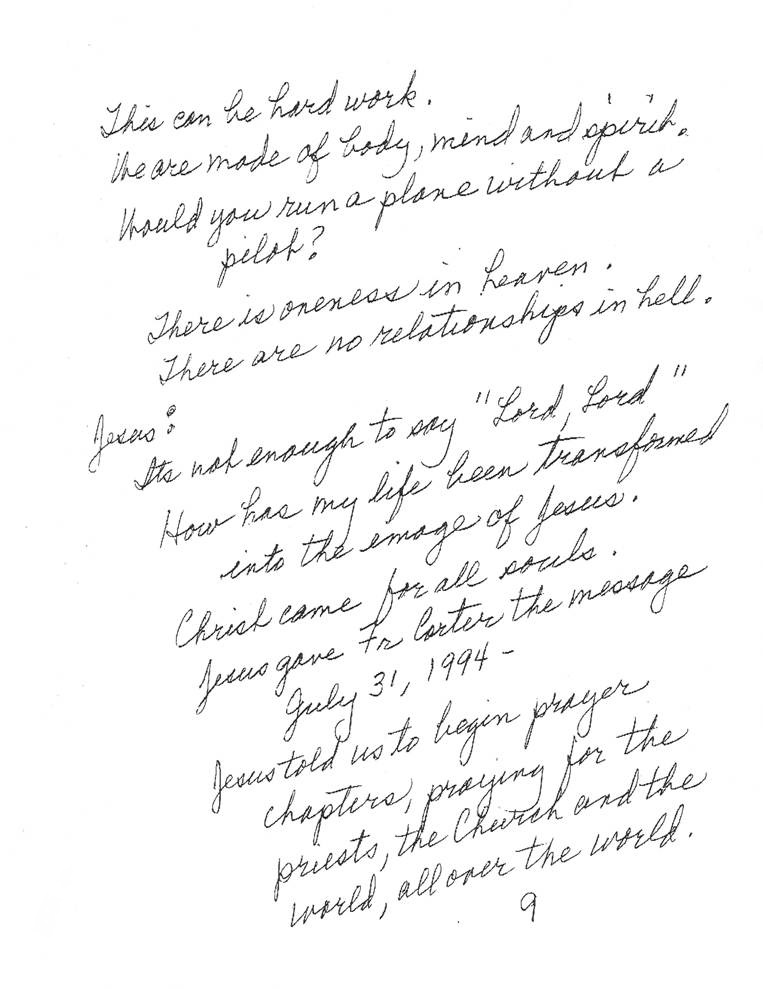 This can be hard work.
We are made of body, mind and spirit.
Would you run a plane without a
pilot?
There is oneness in heaven.
There are no relationships in hell.
Jesus:
Its not enough to say "Lord, Lord"
How has my life been transformed
into the image of Jesus.
Christ came for all souls.
Jesus gave Fr Carter the message
July 31, 1994 -
Jesus told us to begin prayer
chapters, praying for the
priests, the Church and the
world, all over the world.
9